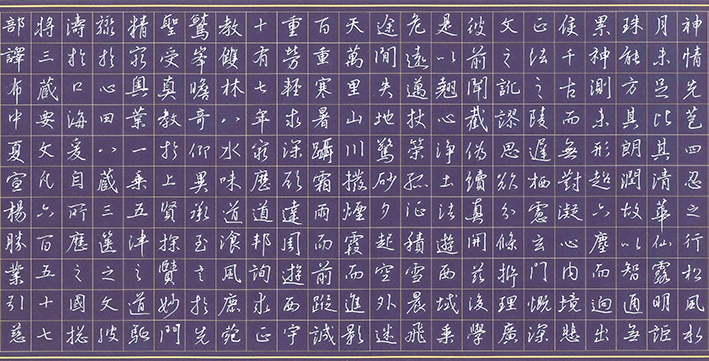 神情先苞四忍之行松風水
月未足比其清華仙露明詎
珠能方其朗潤故以智通無
累神測未形超六塵而迥出
隻千古而無對凝心內境悲
正法之陵遲栖慮玄門慨深
文之訛謬思欲分條析理廣
彼前聞截偽續真開茲後學
是以翹心淨土法遊西域乘
危遠邁杖策孤征積雪晨飛
途間失地驚砂夕起空外迷
天萬里山川撥煙霞而進影
百重寒暑躡霜雨而前蹤誠
重勞輕求深願達周遊西宇
十有七年窮歷道邦詢求正
教雙林八水味道飡風鹿菀
鷲峯瞻奇仰異承至言於先
聖受真教於上賢探賾妙門
精窮奧業一乘五律之道馳
驟於心田八藏三篋之文波
濤於口海爰自所歷之國總
將三藏要文凡六百五十七
部譯布中夏宣揚勝業引慈